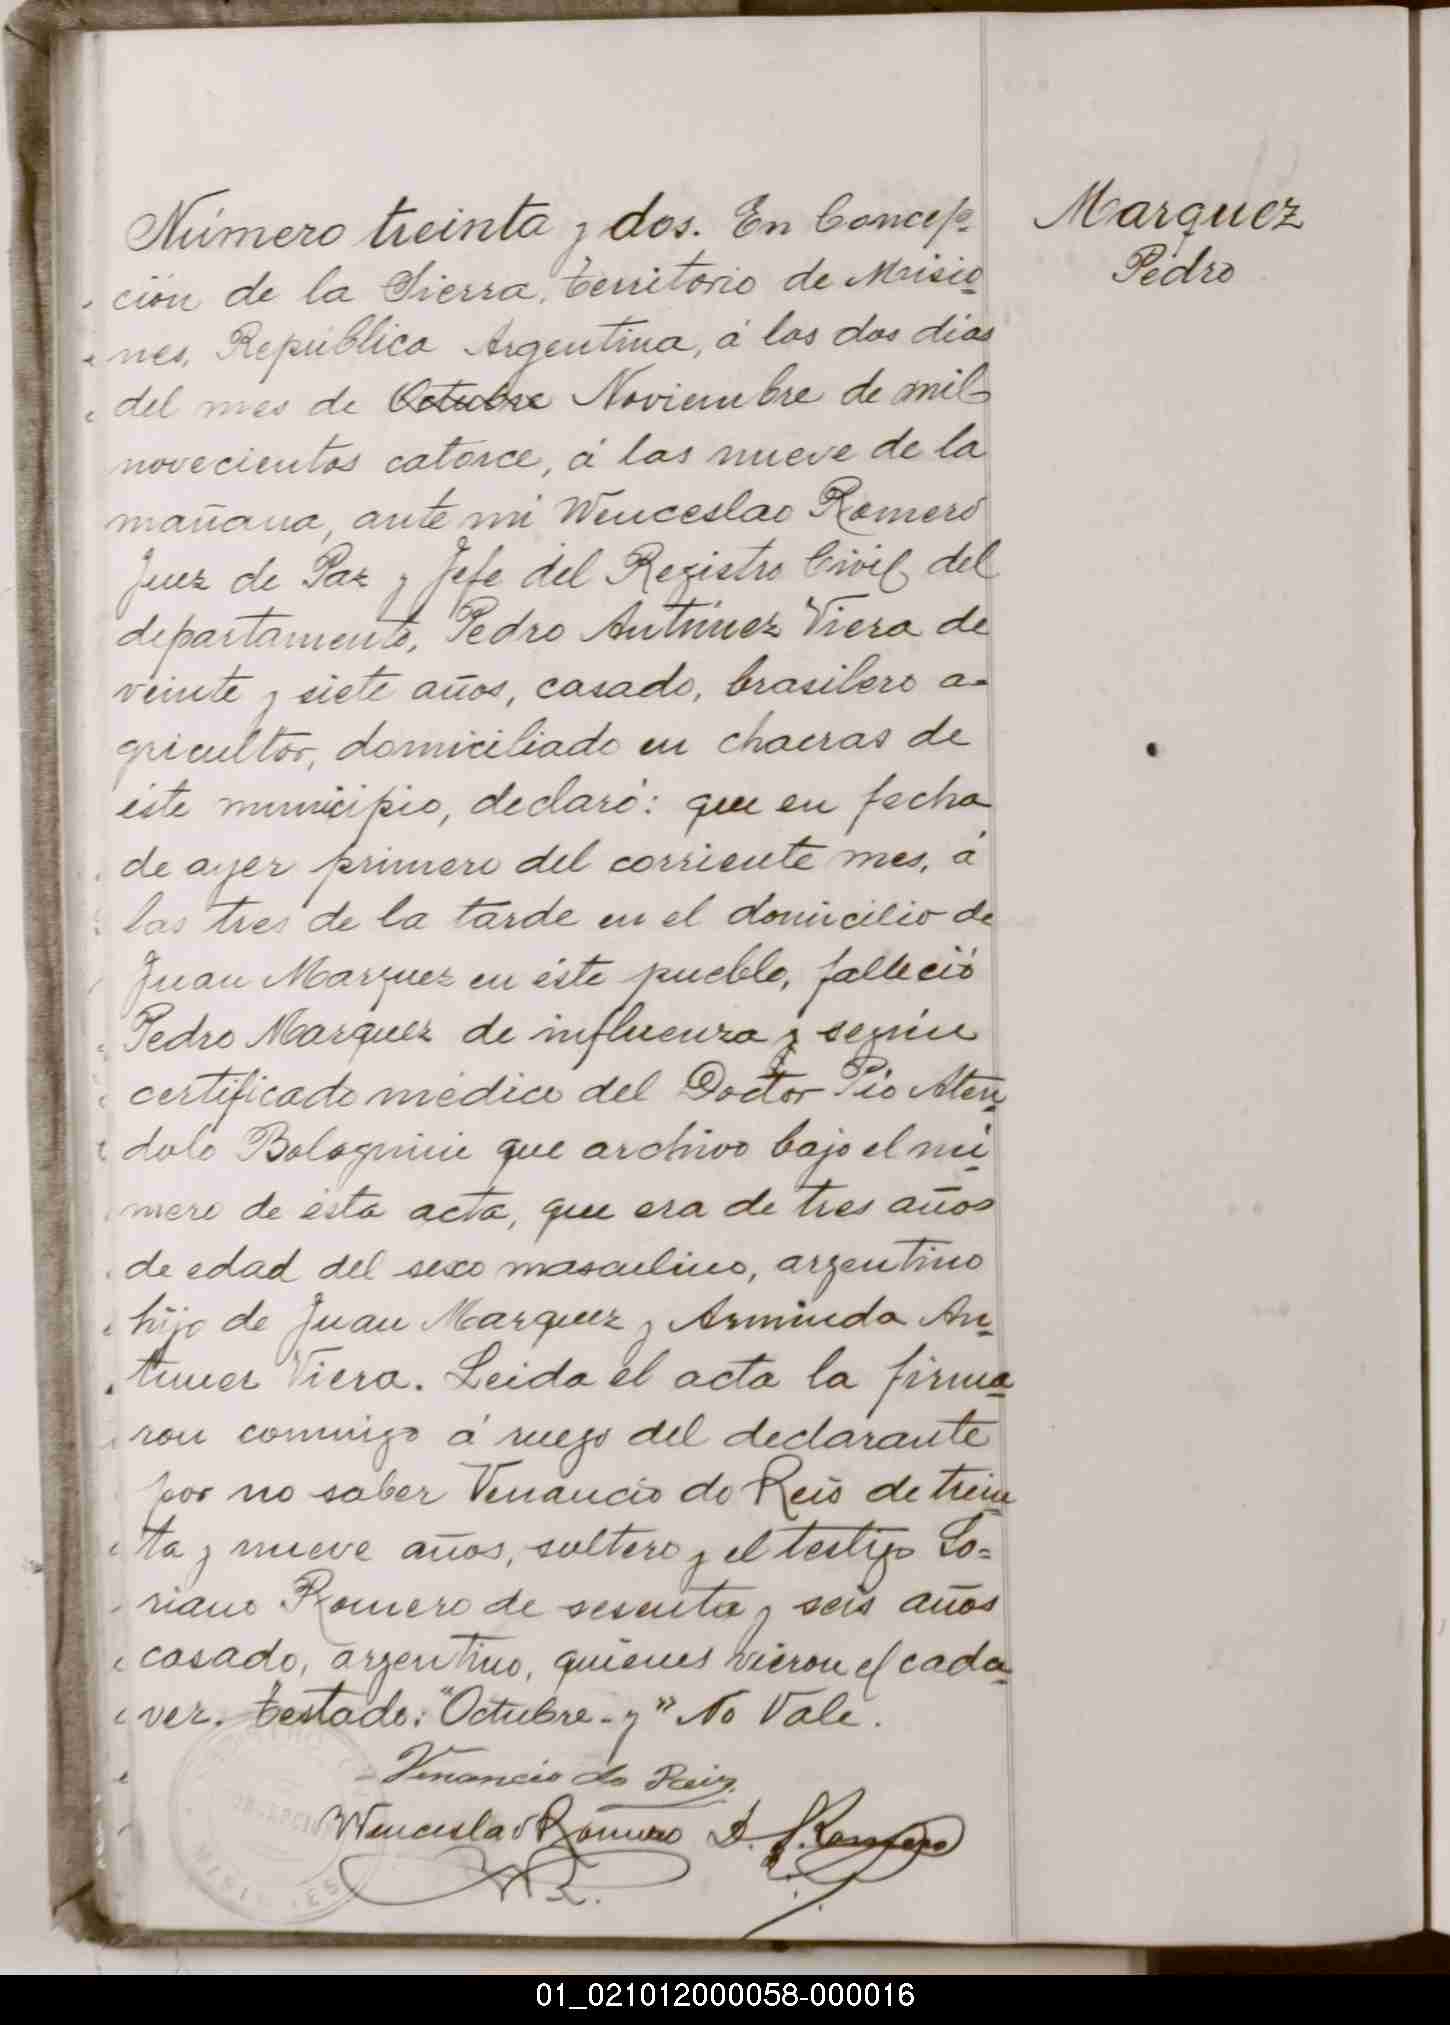 Marquez
Pedro
Número treinta y dos. En Concep-
ción de la Sierra, territorio de Misio-
nes, República Argentina, á los dos dias
del mes de Octubre Noviembre de mil
novecientos catorce, á las nueve de la
mañana, ante mi Wenceslao Romero
Juez de Paz y Jefe del Registro Civil del
departamento, Pedro Antunez Viera de
veinte y siete años, casado, brasilero a-
gricultor, domiciliado en chacras de
éste municipio, declaró: que en fecha
de ayer primero del corriente mes, á
las tres de la tarde en el domicilio de
Juan Marquez en éste pueblo, falleció
Pedro Marquez de influenza y según
certificado médico del Doctor Pio Aten-
dolo Bolognini que archivo bajo el nú-
mero de ésta acta, que era de tres años
de edad del sexo masculino, argentino
hijo de Juan Marquez y Arminda An-
tunez Viera. Leida el acta la firma-
ron conmigo á ruego del declarante
por no saber Venancio do Reis de trein-
ta y nueve años, soltero y el testigo Lo=
riano Romero de sesenta y seis años
casado, argentino, quienes vieron el cada-
ver. Testado: "Octubre - y" No Vale.
Venancio do Reis
Wenceslao Romero L. Romero
WR.
01_021012000058-000016